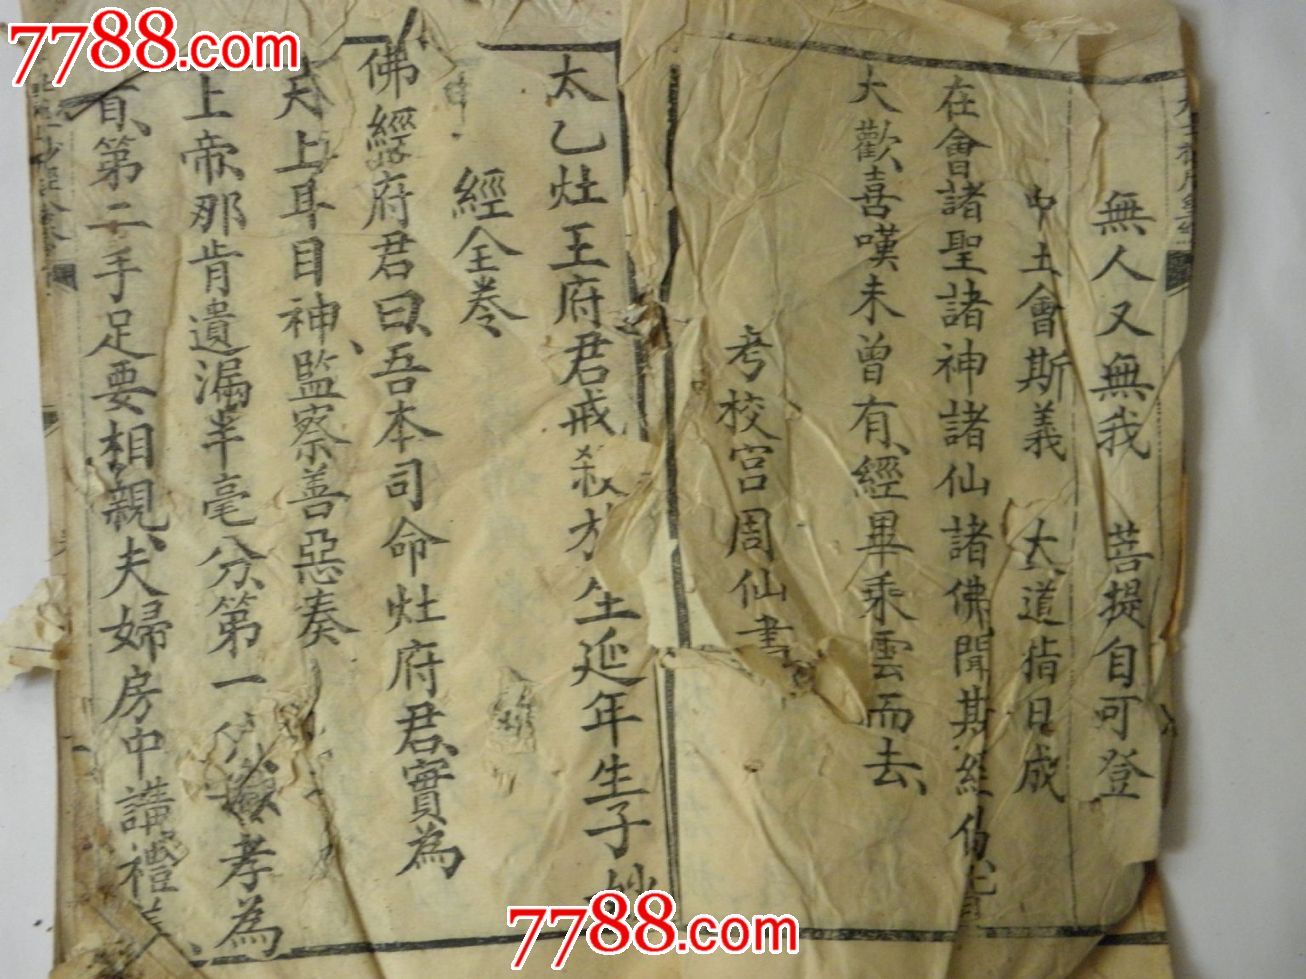 無人又無我 菩提自可登
中土會斯義 大道指日成
在會諸聖諸神諸仙諸佛聞斯經偈皆
大歡喜嘆未曾有經畢乘雲而去
考校宮周仙書
太乙灶王府君戒殺放生延年生子妙
經全卷
佛經府君曰吾本司命灶府君實為
天上耳目神監察善惡奏
上帝那肯遺漏半毫分第一 孝為
首第二手足要相親夫婦房中講禮義
7788.com
7788.com
7788.com